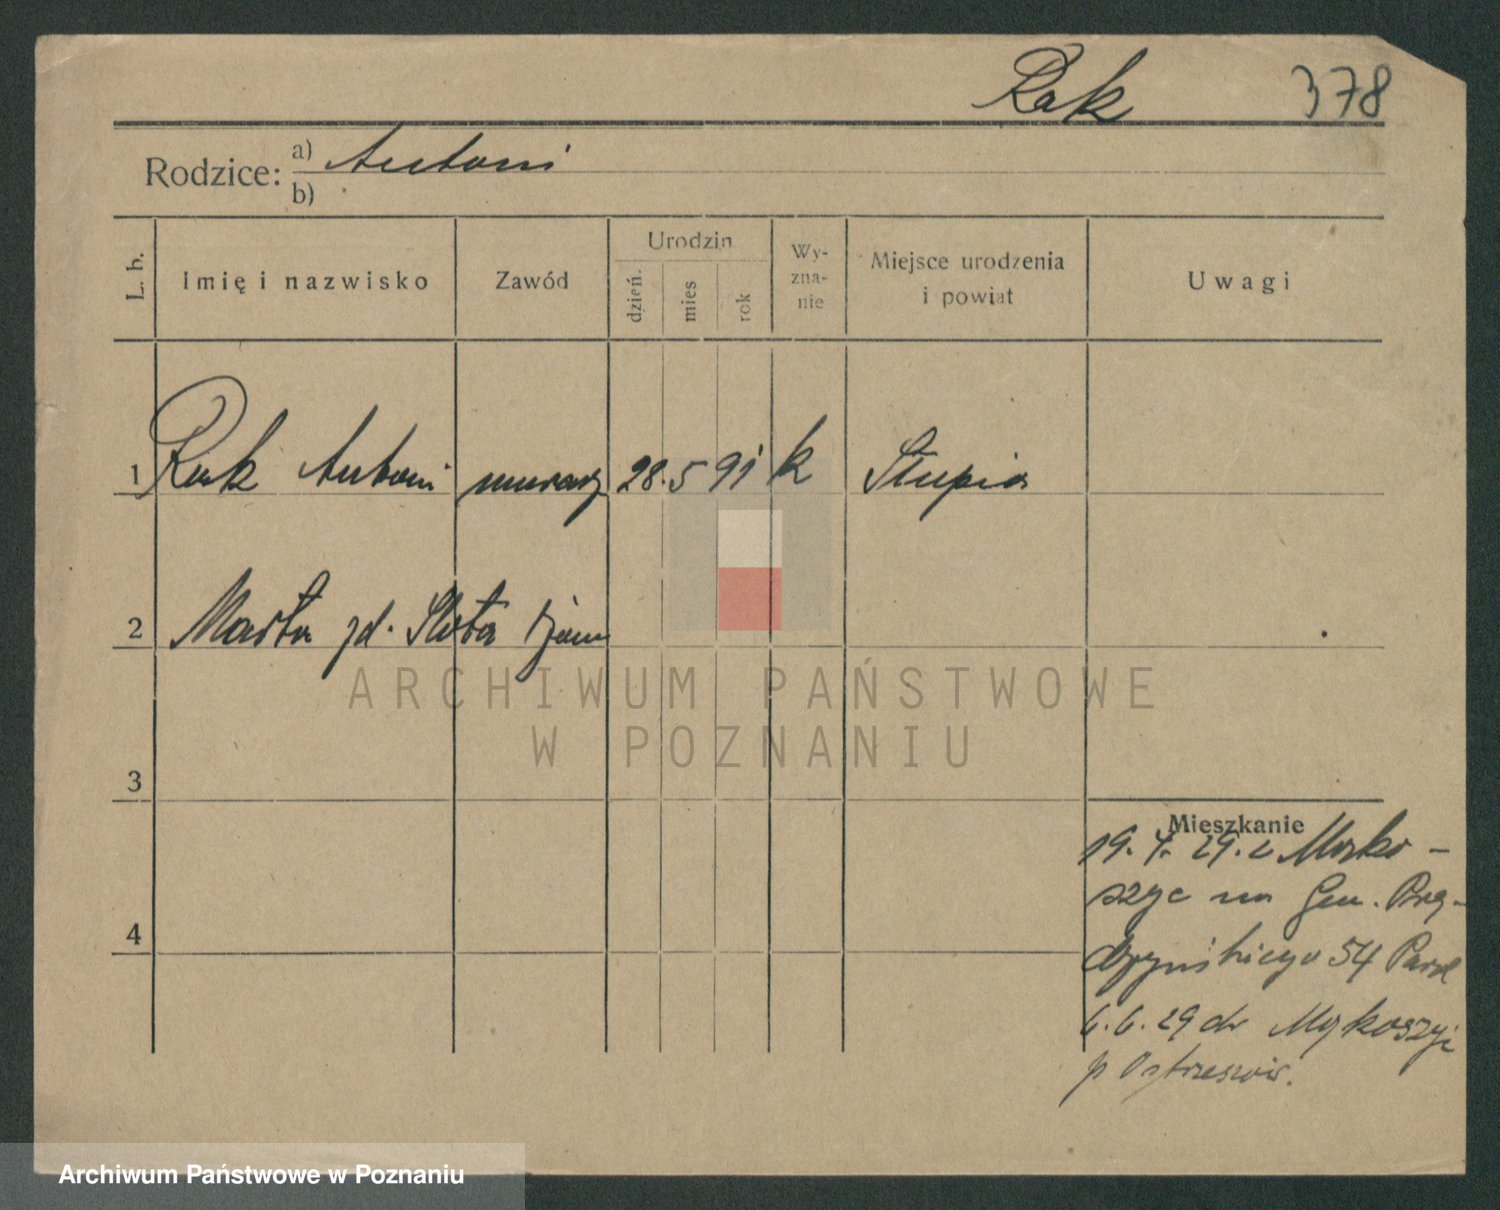 Rak 378
Rodzice: a) Antoni
b)
L. b. Imię i nazwisko Zawód Urodzin dzień. mies rok Wy-zna-nie Miejsce urodzenia i powiat Uwagi
1 Rak Antoni murarz 28. 5 91 k Słupia
2 Marta zd. Słota
3
4
Mieszkanie
19. 4. 29. z Myko-
szyc na Gen. Prą-
dzyńskiego 54
6. 6. 29 do Mykoszyc
p Ostrzeszów.
ARCHIWUM PAŃSTWOWE
W POZNANIU
Archiwum Państwowe w Poznaniu